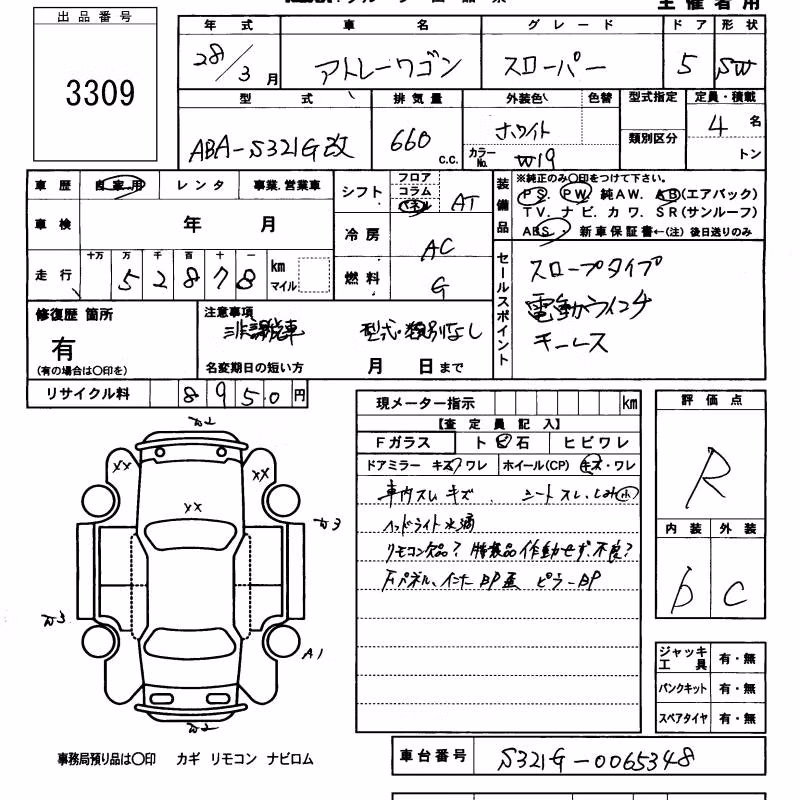 主催者用
出品番号
3309
年式 車名 グレード ドア 形状
28/3月 アトレーワゴン スローパー 5 SW
型式 排気量 外装色 色替 型式指定 定員・積載
ABA-S321G改 660 C.C. ホワイト 類別区分 4名
カラーNo. W19 トン
車歴 自家用 レンタ 事業.営業車
シフト フロア コラム パネル AT
装備品 ※純正のみ〇印をつけて下さい。
PS. PW. 純AW. AB(エアバック)
TV. ナビ. カワ. SR(サンルーフ)
ABS. 新車保証書←(注)後日送りのみ
車検 年 月
冷房 AC
走行 十万 万 千 百 十 一
52878 km マイル
燃料 G
セールスポイント
スロープタイプ
電動ウインチ
キーレス
修復歴 箇所
有
(有の場合は〇印を)
注意事項
非課税車 型式・類別なし
名変期日の短い方 月 日まで
リサイクル料 8950円
現メーター指示 km
【査定員記入】
Fガラス トビ石 ヒビワレ
ドアミラー キズ/ワレ ホイール(CP) キズ・ワレ
車内スレ キズ シートスレ.シミ小
ヘッドライト水滴
リモコン欠品? 特装品作動せず.不良?
Fパネル、インナーBP歪 ピラーBP
評価点
R
内装 外装
D C
カ2
XX XX
XX
カ3
カ3
A1
カ2
ジャッキ工具 有・無
パンクキット 有・無
スペアタイヤ 有・無
事務局預り品は〇印 カギ リモコン ナビロム
車台番号 S321G-0065348